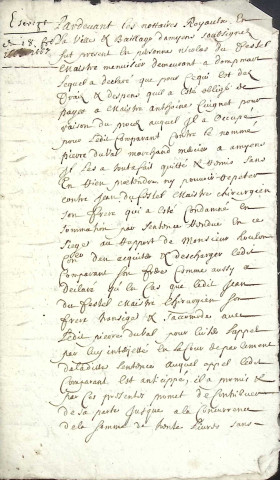 Pardevant les nottaires Royaulx En
la Ville & Bailliage damyens soubsignez
fut present en personne nicolas du Castel
Maistre menuisier demeurant a dompmart
Lequel a declaré que pour ce qui est des
frais & despens quil a esté obligé de
payer a Maistre anthoine Cuignet pour
raison du procez auquel il a occupé
pour Ledit Comparant contre le nommé
pierre duval marchand mercier a amyens
Il Les a toutafait quitté & Remis sans
En Rien pretendre ny pouvoir Repeter
contre Jean du Castel Maistre chirurgien
son frere qui a esté Condamné en
sommation par Sentence Rendue en ce
Siege au Rapport de Monsieur
den acquitter & descharger Ledit
Comparant son frere Comme aussy a
Declaré qu'en Cas que Ledit Jean
du Castel Maistre Chirurgien son
frere transige & saccomode avec
Ledit pierre duval pour Lappel
par luy interjetté en La Cour de parlement
de Ladite Sentence auquel appel Ledit
Comparant est anticippé, il a promis &
par Ces presentes promet de Contribuer
de sa parte Jusque a la Concurrence
de la somme de trente Livres sans